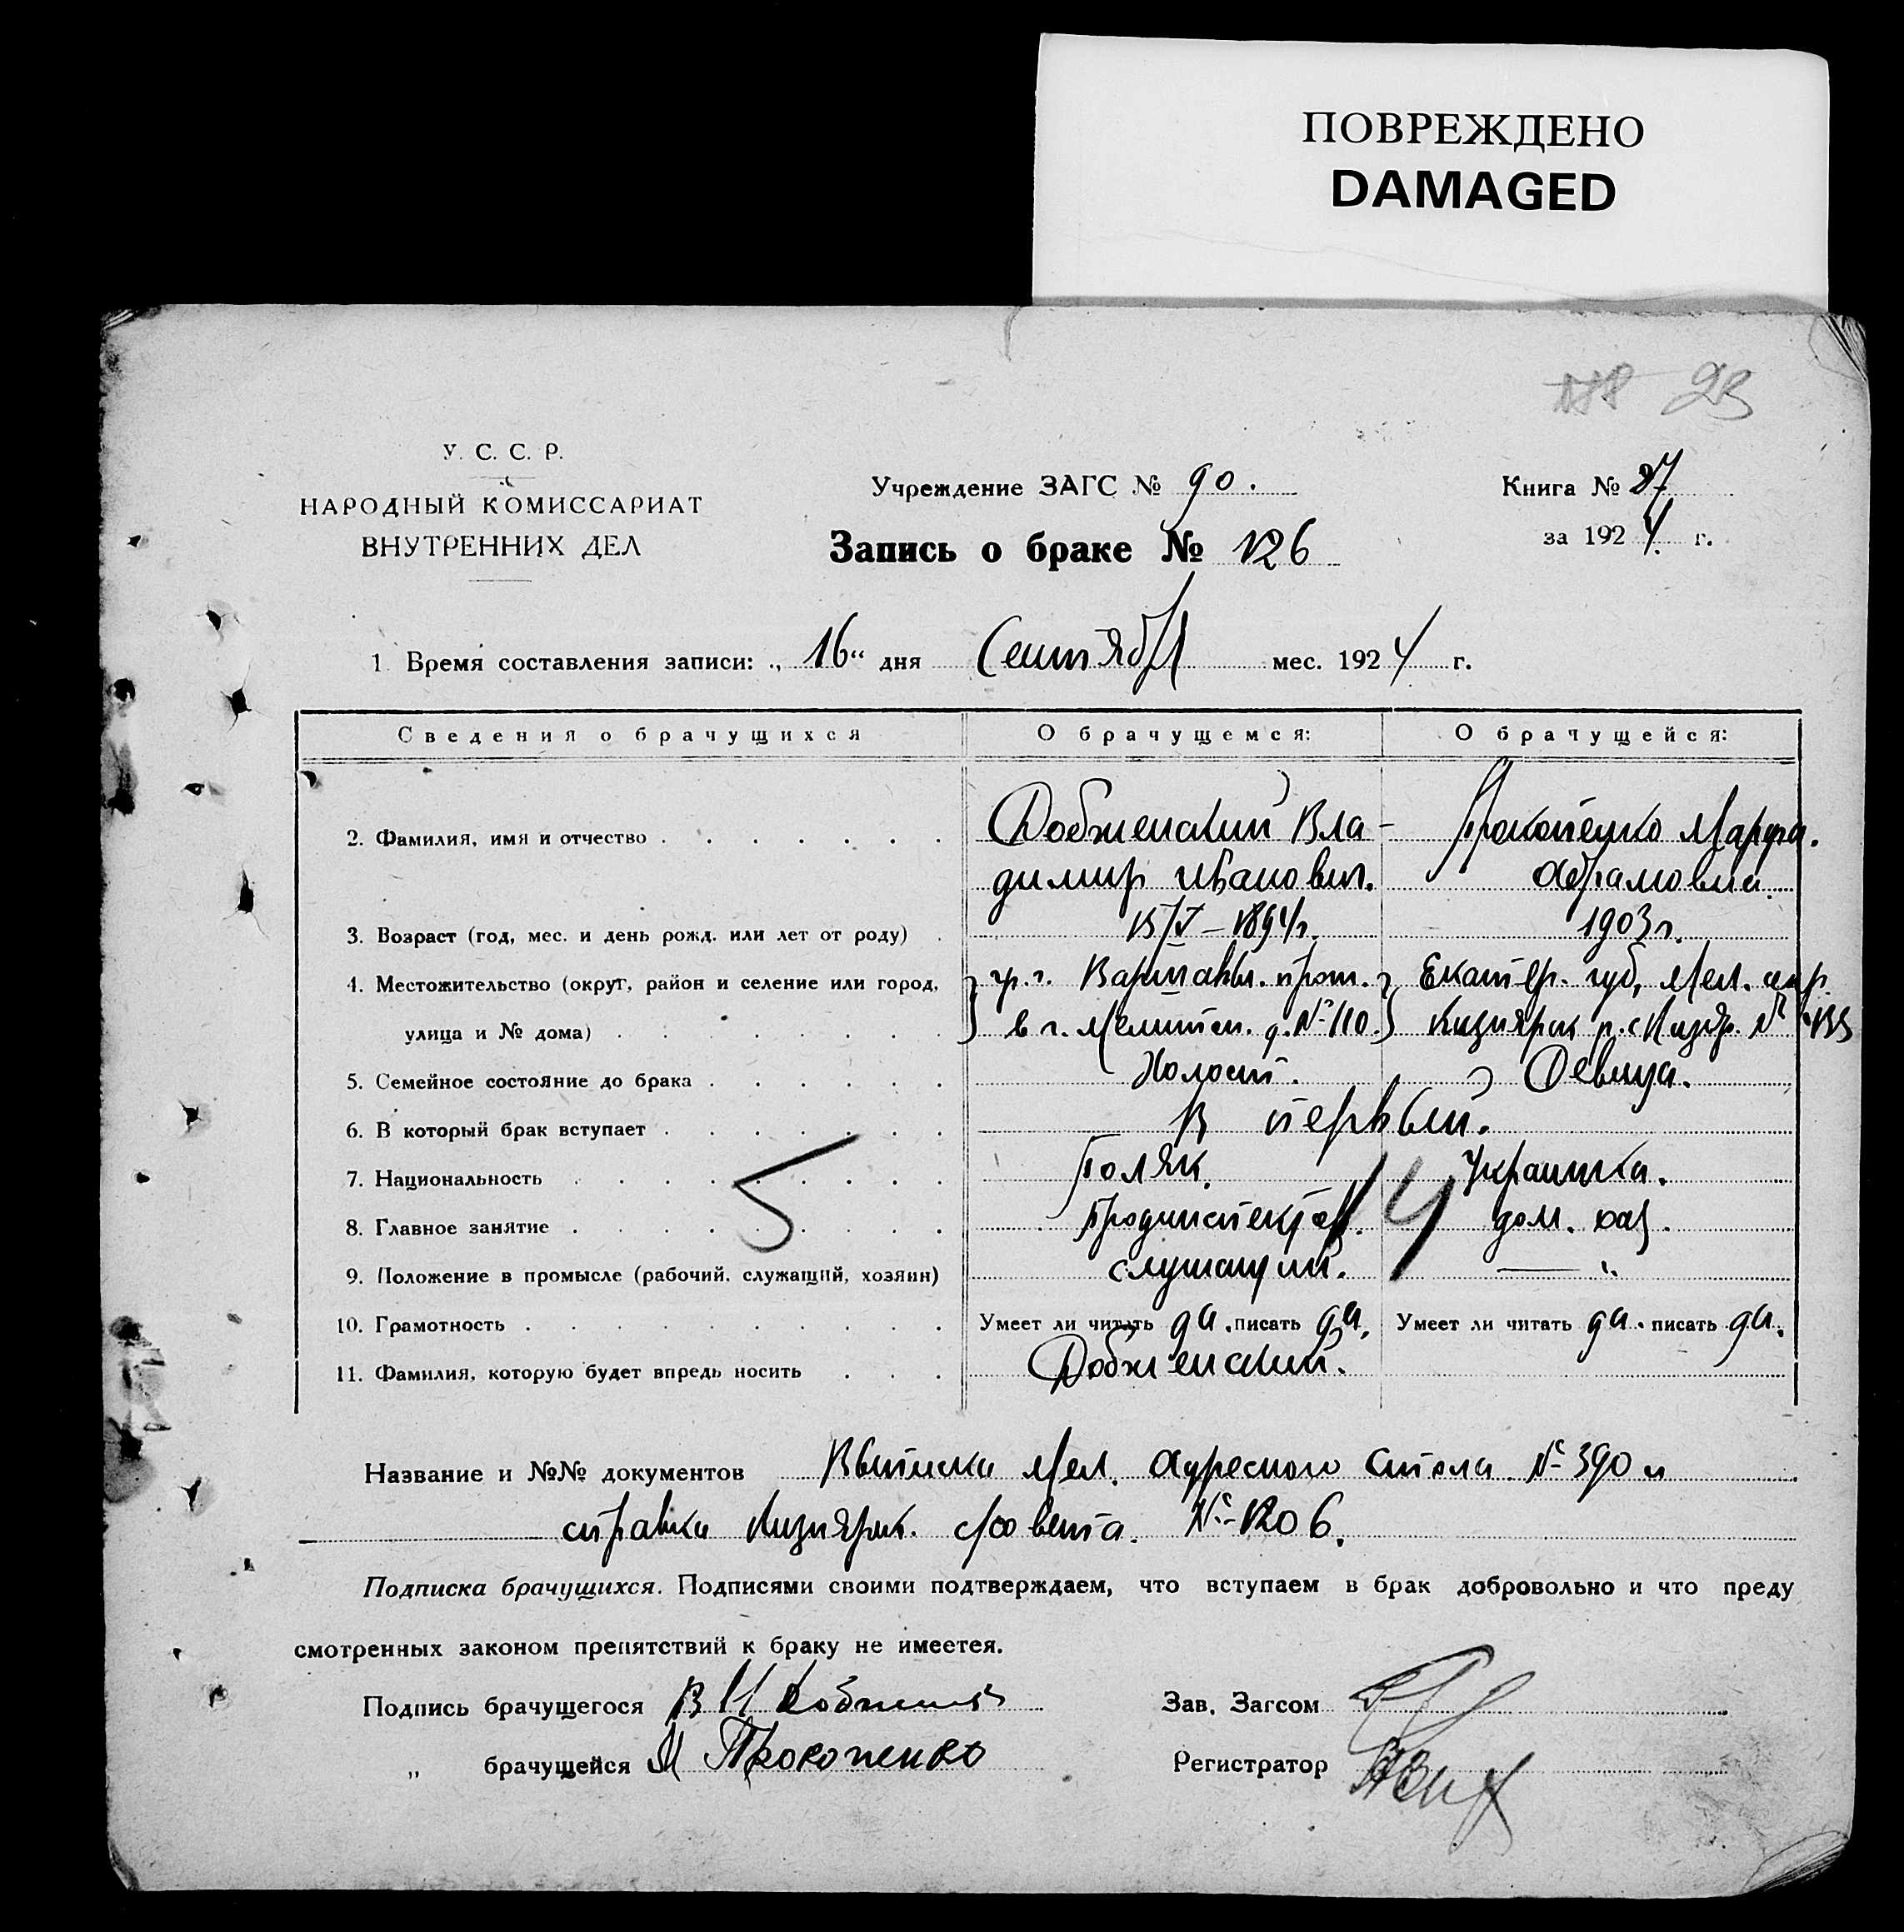 ПОВРЕЖДЕНО
DAMAGED
93
У. С. С. Р.
НАРОДНЫЙ КОМИССАРИАТ
ВНУТРЕННИХ ДЕЛ
Учреждение ЗАГС № 90.
Запись о браке № 126
Книга № 27
за 1924 г.
1 Время составления записи: „ 16 “ дня Сентября мес. 1924 г.
Сведения о брачущихся О брачущемся: О брачущейся:
2. Фамилия, имя и отчество Добженский Вла- Прокопенко Марфа.
димир Иванович. Абрамовна.
3. Возраст (год, мес. и день рожд. или лет от роду) 15/V–1894г. 1903 г.
4. Местожительство (округ, район и селение или город, гр. г. Варшавы. прож. Екатер. губ, Мел. окр.
улица и № дома) в г. Мелитоп. д. № 110. Кизиярск р. с Кизяр. №
5. Семейное состояние до брака Холост. Девица.
6. В который брак вступает В первый.
7. Национальность Поляк. Украинка.
8. Главное занятие Продинспектор. дом. хоз.
9. Положение в промысле (рабочий, служащий, хозяин) служащий. — „
10. Грамотность Умеет ли читать да. писать да. Умеет ли читать да. писать да.
11. Фамилия, которую будет впредь носить Добженский.
5 4
Название и №№ документов Выписка Мел. Адресного Стола № 390 и
справка Кизиярск. с/совета. № 1206.
Подписка брачущихся. Подписями своими подтверждаем, что вступаем в брак добровольно и что преду
смотренных законом препятствий к браку не имеется.
Подпись брачущегося В И Добженский
Зав. Загсом
„ брачущейся М Прокопенко
Регистратор